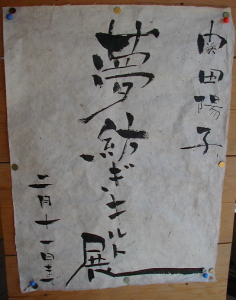 内田陽子
夢紡ぎキルト展
二月十一日